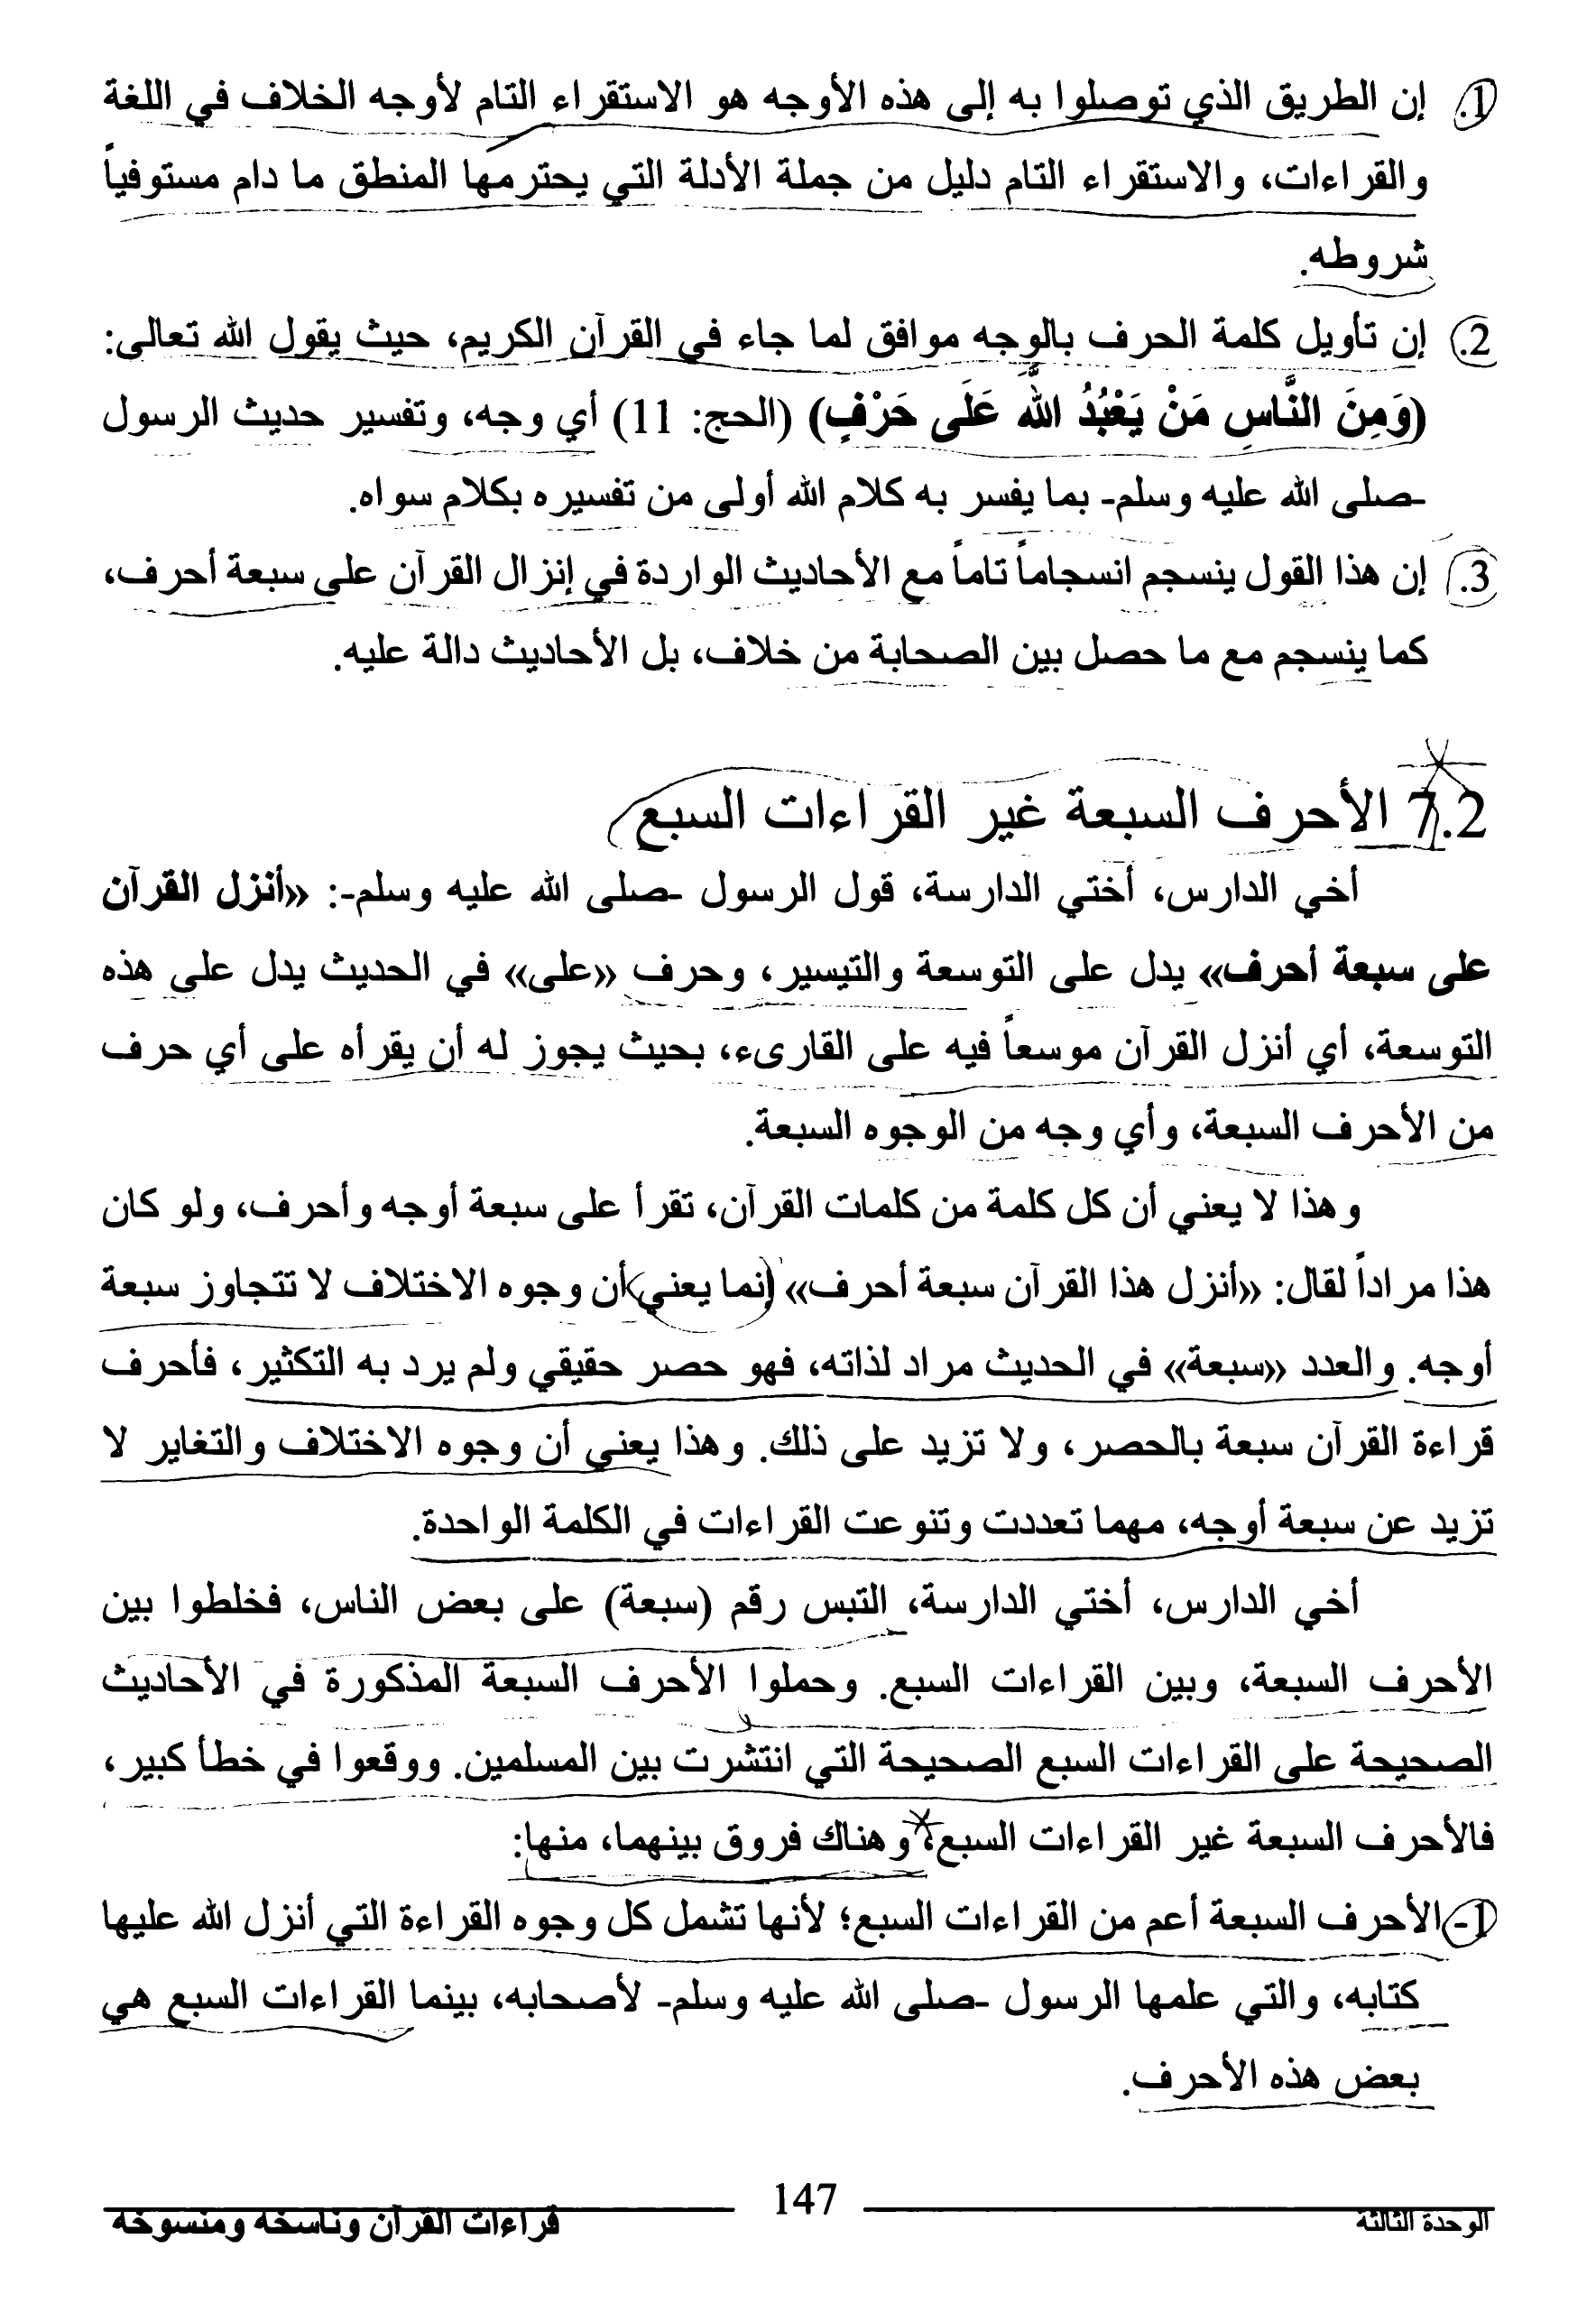 1. إن الطريق الذي توصلوا به إلى هذه الأوجه هو الاستقراء التام لأوجه الخلاف في اللغة
والقراءات، والاستقراء التام دليل من جملة الأدلة التي يحترمها المنطق ما دام مستوفياً
شروطه.
2. إن تأويل كلمة الحرف بالوجه موافق لما جاء في القرآن الكريم، حيث يقول الله تعالى:
(وَمِنَ النَّاسِ مَنْ يَعْبُدُ اللَّهَ عَلَى حَرْفٍ) (الحج: 11) أي وجه، وتفسير حديث الرسول
-صلى الله عليه وسلم- بما يفسر به كلام الله أولى من تفسيره بكلام سواه.
3. إن هذا القول ينسجم انسجاماً تاماً مع الأحاديث الواردة في إنزال القرآن على سبعة أحرف،
كما ينسجم مع ما حصل بين الصحابة من خلاف، بل الأحاديث دالة عليه.
7.2 الأحرف السبعة غير القراءات السبع
أخي الدارس، أختي الدارسة، قول الرسول -صلى الله عليه وسلم-: «أنزل القرآن
على سبعة أحرف» يدل على التوسعة والتيسير، وحرف «على» في الحديث يدل على هذه
التوسعة، أي أنزل القرآن موسعاً فيه على القارىء، بحيث يجوز له أن يقرأه على أي حرف
من الأحرف السبعة، وأي وجه من الوجوه السبعة.
وهذا لا يعني أن كل كلمة من كلمات القرآن، تقرأ على سبعة أوجه وأحرف، ولو كان
هذا مراداً لقال: «أنزل هذا القرآن سبعة أحرف» إنما يعني أن وجوه الاختلاف لا تتجاوز سبعة
أوجه. والعدد «سبعة» في الحديث مراد لذاته، فهو حصر حقيقي ولم يرد به التكثير، فأحرف
قراءة القرآن سبعة بالحصر، ولا تزيد على ذلك. وهذا يعني أن وجوه الاختلاف والتغاير لا
تزيد عن سبعة أوجه، مهما تعددت وتنوعت القراءات في الكلمة الواحدة.
أخي الدارس، أختي الدارسة، التبس رقم (سبعة) على بعض الناس، فخلطوا بين
الأحرف السبعة، وبين القراءات السبع. وحملوا الأحرف السبعة المذكورة في الأحاديث
الصحيحة على القراءات السبع الصحيحة التي انتشرت بين المسلمين. ووقعوا في خطأ كبير،
فالأحرف السبعة غير القراءات السبع، وهناك فروق بينهما، منها:
1- الأحرف السبعة أعم من القراءات السبع؛ لأنها تشمل كل وجوه القراءة التي أنزل الله عليها
كتابه، والتي علمها الرسول -صلى الله عليه وسلم- لأصحابه، بينما القراءات السبع هي
بعض هذه الأحرف.
الوحدة الثالثة 147 قراءات القرآن وناسخه ومنسوخه